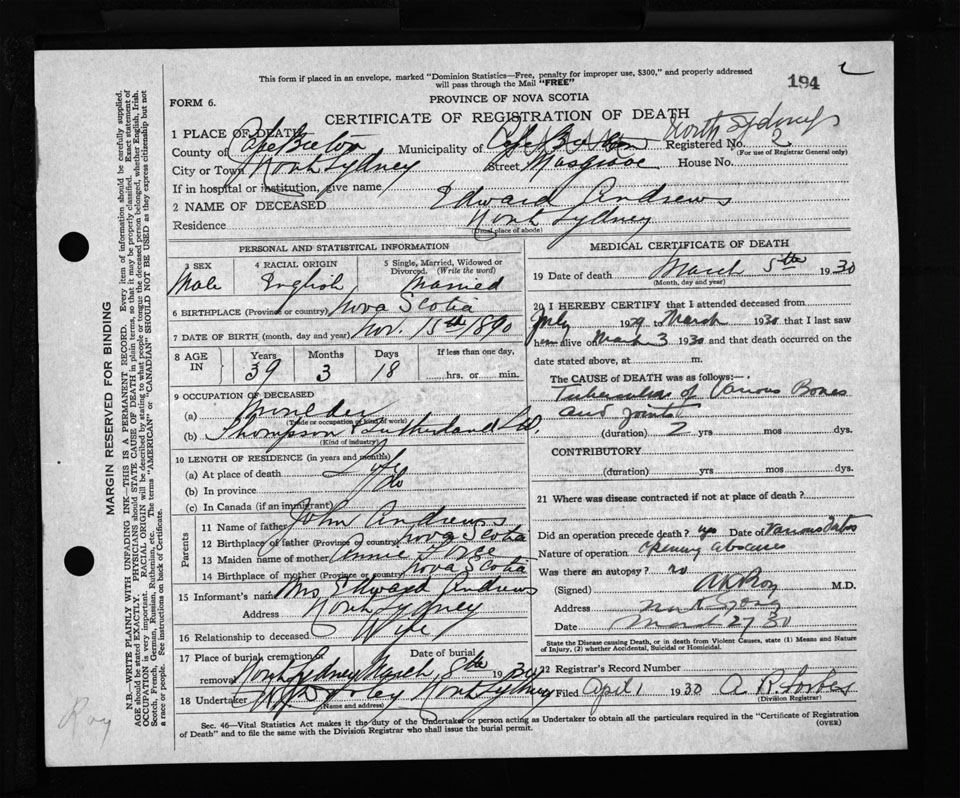 This form if placed in an envelope, marked "Dominion Statistics—Free, penalty for improper use, $300," and properly addressed
will pass through the Mail "FREE"
194
FORM 6.
PROVINCE OF NOVA SCOTIA
CERTIFICATE OF REGISTRATION OF DEATH
1 PLACE OF DEATH
North Sydney
County of Cape Breton Municipality of Cape Breton Registered No. 2
(For use of Registrar General only)
City or Town North Sydney Street Musgrave House No.
If in hospital or institution, give name
2 NAME OF DECEASED Edward Andrews
Residence North Sydney
(Usual place of abode)
PERSONAL AND STATISTICAL INFORMATION
3 SEX 4 RACIAL ORIGIN 5 Single, Married, Widowed or Divorced. (Write the word)
Male English Married
6 BIRTHPLACE (Province or country) Nova Scotia
7 DATE OF BIRTH (month, day and year) Nov. 15th 1890
8 AGE IN Years Months Days If less than one day,
39 3 18 hrs. or min.
9 OCCUPATION OF DECEASED
(a) Moulder
(Trade or occupation or kind of work)
(b) Thompson & Sutherland Ltd.
(Kind of industry)
10 LENGTH OF RESIDENCE (in years and months)
(a) At place of death Life
(b) In province do
(c) In Canada (if an immigrant)
Parents
11 Name of father John Andrews
12 Birthplace of father (Province or country) Nova Scotia
13 Maiden name of mother Annie
14 Birthplace of mother (Province or country) Nova Scotia
15 Informant's name Mrs. Edward Andrews
Address North Sydney
16 Relationship to deceased Wife
17 Place of burial, cremation or removal Date of burial
North Sydney March 8th 1930
18 Undertaker North Sydney
(Name and address)
MEDICAL CERTIFICATE OF DEATH
19 Date of death March 5th 1930
(Month, day and year)
20 I HEREBY CERTIFY that I attended deceased from
July 1929 to March 1930 that I last saw
h alive on March 3 1930 and that death occurred on the
date stated above, at m.
The CAUSE of DEATH was as follows:—
Tuberculosis of Various Bones
and Joints
(duration) 2 yrs mos dys.
CONTRIBUTORY
(duration) yrs mos dys.
21 Where was disease contracted if not at place of death?
Did an operation precede death? yes Date of Various dates
Nature of operation Opening abscesses
Was there an autopsy? no
(Signed) M.D.
Address
Date March 27 30
State the Disease causing Death, or in death from Violent Causes, state (1) Means and Nature
of Injury, (2) whether Accidental, Suicidal or Homicidal.
22 Registrar's Record Number
Filed April 1 1930 A. R. Forbes
(Division Registrar)
Sec. 46—Vital Statistics Act makes it the duty of the Undertaker or person acting as Undertaker to obtain all the particulars required in the "Certificate of Registration
of Death" and to file the same with the Division Registrar who shall issue the burial permit.
(OVER)
MARGIN RESERVED FOR BINDING
N.B.—WRITE PLAINLY WITH UNFADING INK—THIS IS A PERMANENT RECORD. Every item of information should be carefully supplied.
AGE should be stated EXACTLY. PHYSICIANS should STATE CAUSE OF DEATH in plain terms, so that it may be properly classified. Exact statement of
OCCUPATION is very important. RACIAL ORIGIN will be described by stating to what people or tongue the deceased person belonged, whether English, Irish,
Scotch, French, German, Russian, Ruthenian, etc. The terms "AMERICAN" or "CANADIAN" SHOULD NOT BE USED as they express citizenship but not
a race or people. See instructions on back of Certificate.
Roy